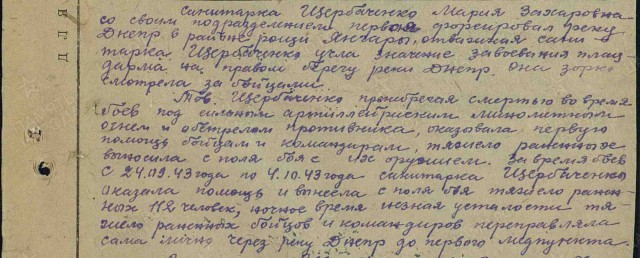 Санитарка Щербаченко Мария Захаровна
со своим подразделением первая форсировал реку
Днепр в районе рощи Янтары, отважная сани
тарка Щербаченко учла значение завоевания плац
дарма на правом берегу реки Днепр. Она зорко
смотрела за бойцами.
Тов. Щербаченко пренебрегая смертью во время
боев под сильным артиллерийским минометным
огнем и обстрелом противника, оказовала первую
помощь бойцам и командирам, тяжело раненных
выносила с поля боя с их оружием. За время боев
с 24.09.43 года по 4.10.43 года санитарка Щербаченко
оказала помощь и вынесла с поля боя тяжело ранен-
ных 112 человек, ночное время незная усталости тя-
жело раненых бойцов и командиров переправляла
сама лично через реку Днепр до первого медпункта.